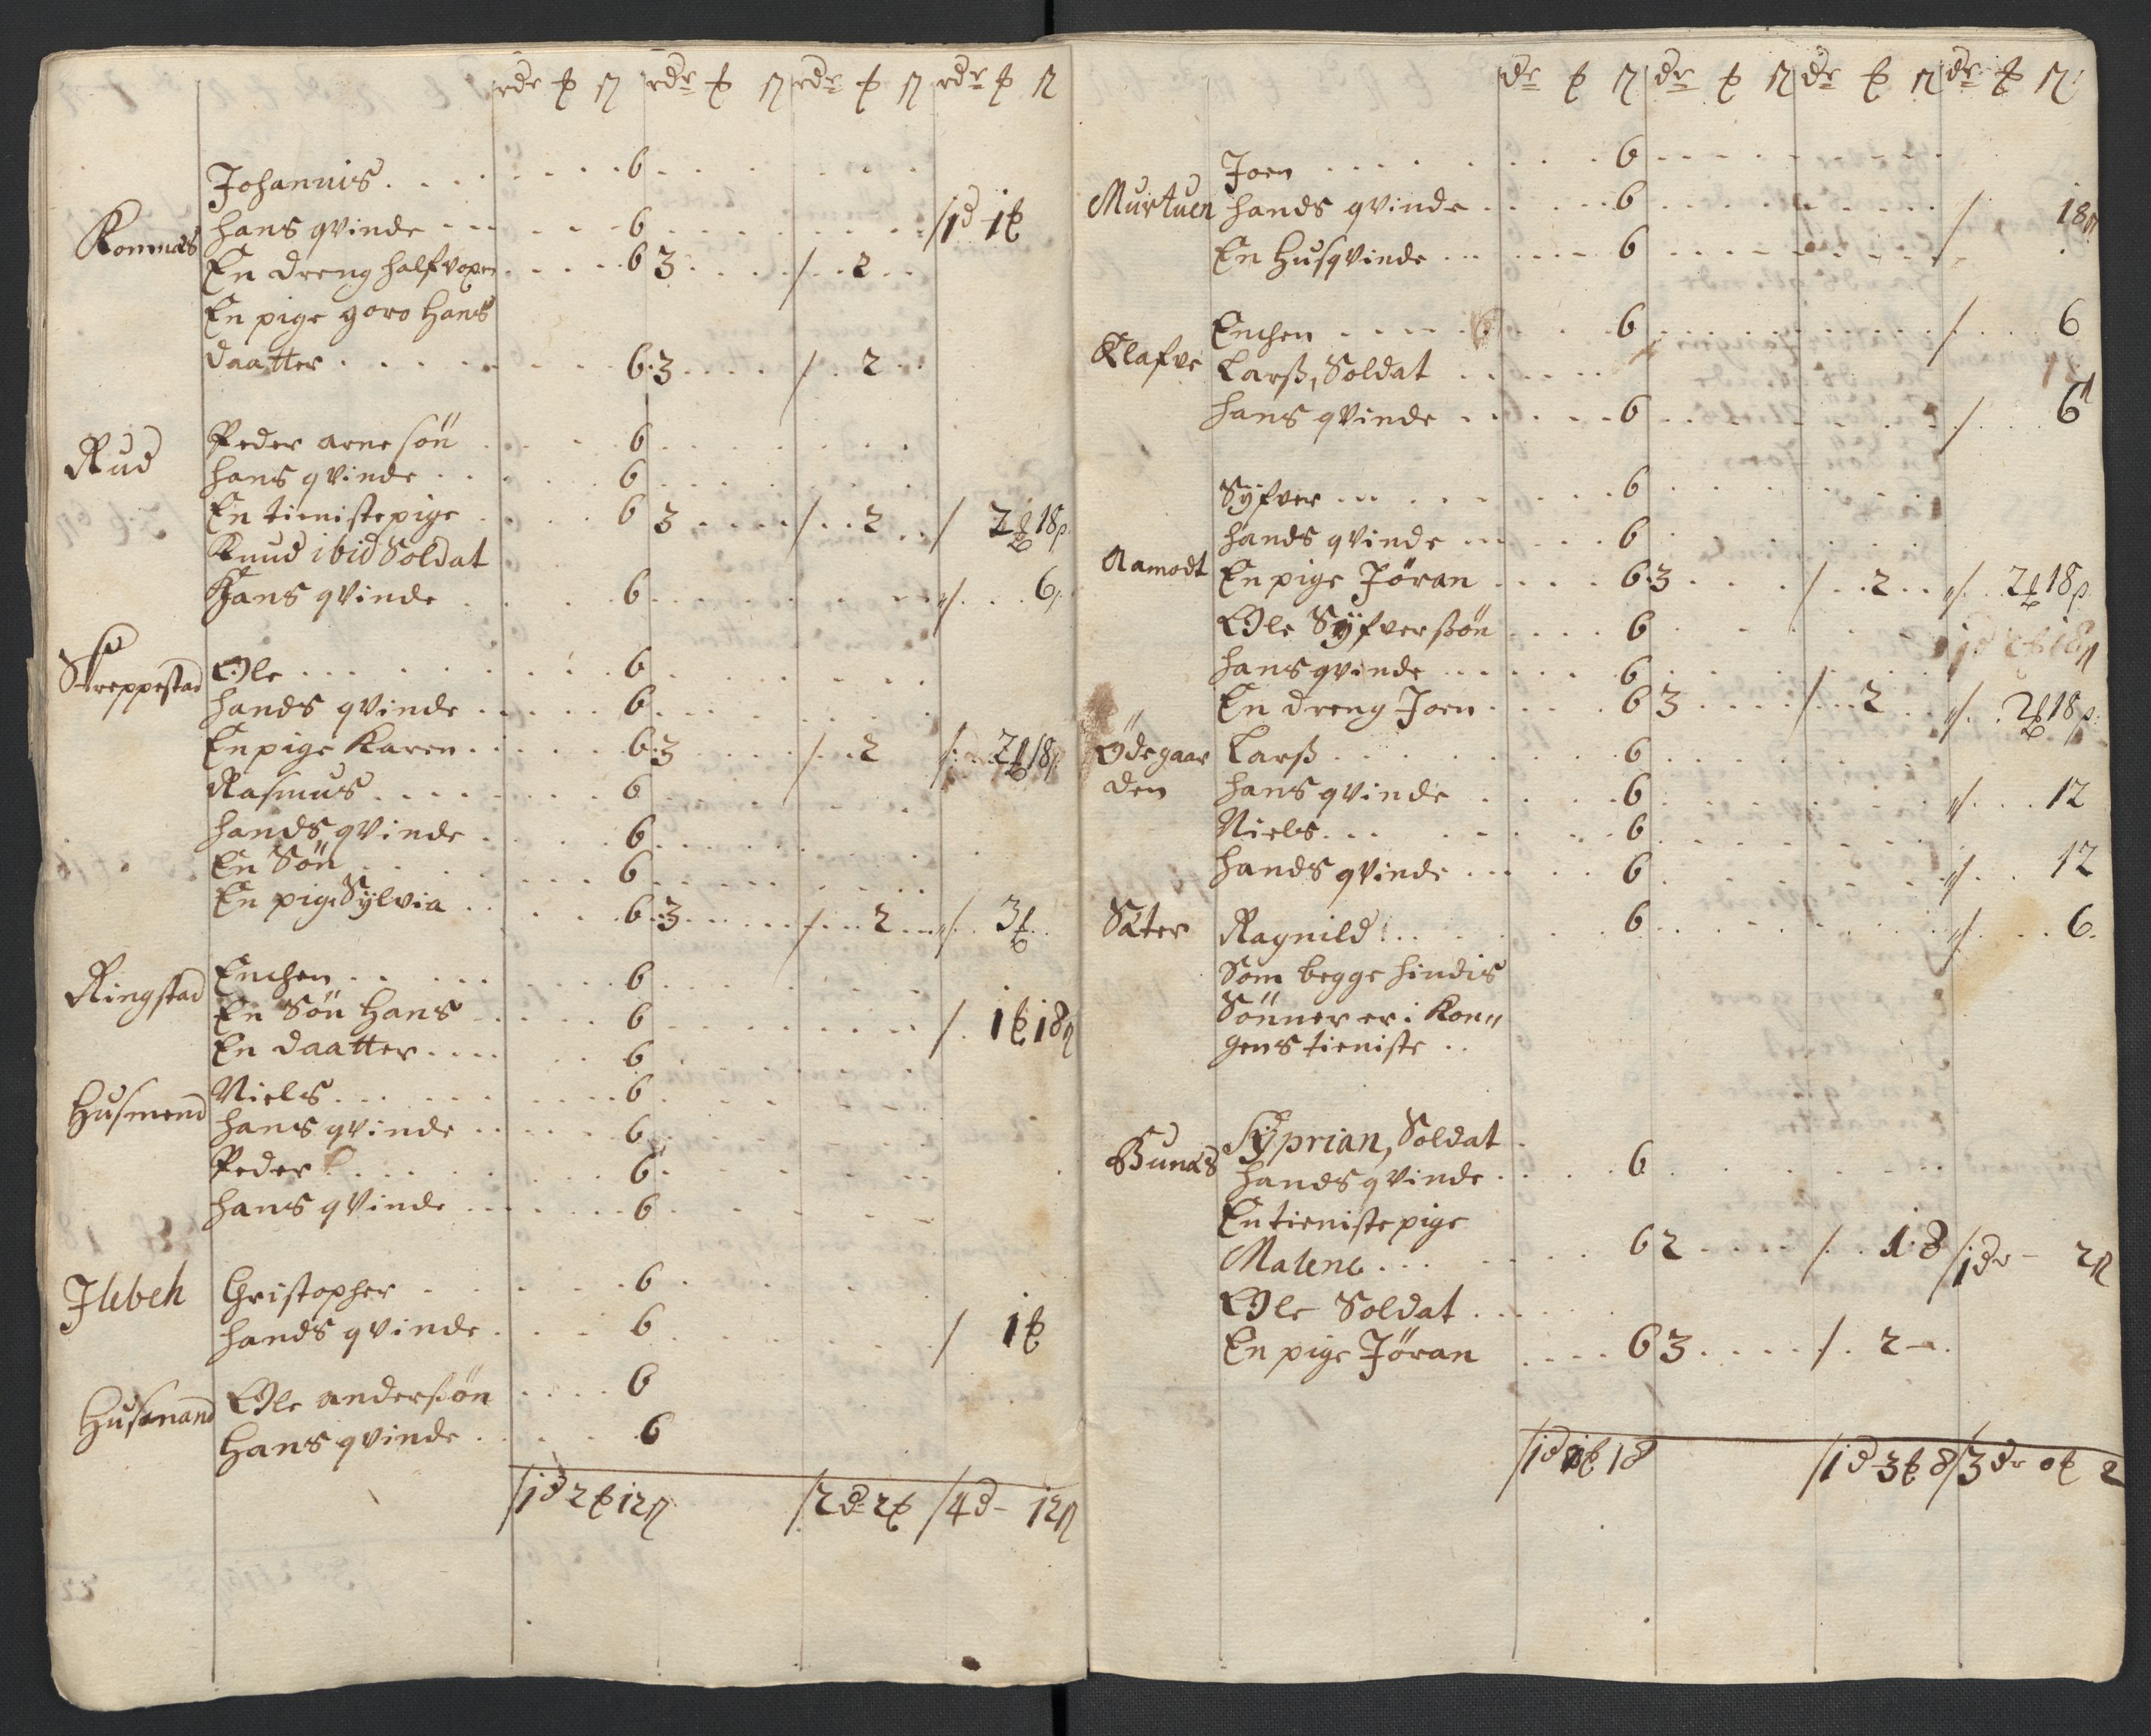 rdr ꝑ ß rdr ꝑ ß rdr ꝑ ß rdr ꝑ ß
Johannis . . . 6
Konnæs hans qvinde - - - 6 /1d 1ꝑ
En dreng halfvoxen 6 3 /. . 2
En pige goro Hans
daatter 6 3 / 2
Rud Peder arnesön 6
hans qvinde 6
En tienistepige 6 3 /. . 2 / 2ꝑ 18ß
Knud ibid Soldat
Hans qvinde 6 /. . . 6ß
Streppestad Ole 6
hands qvinde 6
En pige Karen 6 3 /. . 2 /. 2ꝑ 18ß
Rasmus 6
hands qvinde 6
En Sön 6
En pige Sÿlvia 6 3 /. . . 2 /. 3ꝑ
Ringstad Enchen 6
En Sön Hans 6 /. 1ꝑ 18ß
En daatter 6
Husmend Niels 6
hans qvinde 6
Peder 6
hans qvinde 6
Ilebek Christopher 6
hands qvinde 6 / 1ꝑ
Husmand Ole andersön 6
Hans qvinde 6
/1d 2ꝑ 12ß /2d 2ꝑ /4d - 12ß
dr ꝑ ß dr ꝑ ß dr ꝑ ß dr ꝑ ß
Joen 6
Murtuen hands qvinde 6 / 18ß
En Husqvinde 6
Enchen 6 /. . . 6
Klafve Larß, Soldat
hans qvinde 6 /. . . 6ß
Syfver 6
hands qvinde 6
Aamodt En pige Jöran 6 3 /. . 2 /. 2ꝑ 18ß
Ole Sÿfverßön 6
hans qvinde 6
En dreng Joen 6 3 /. . 2 /. 2ꝑ 18ß
Ödegaar Larß 6
den hans qvinde 6 /. . . 12
Niels 6
hands qvinde 6 /. . 12
Säter Ragnild 6 /. . . 6.
Som begge hindis
Sönner er i Kon„
gens tieniste . .
Bunæs Syprian, Soldat
hands qvinde 6
En tienistepige
Malene 6 2 /. . 1.8 /1dr - 2ß
Ole Soldat
En pige Jöran 6 3 /. 2 -
/1d 1ꝑ 18 /1d 3ꝑ 8 /3dr 0ꝑ 2